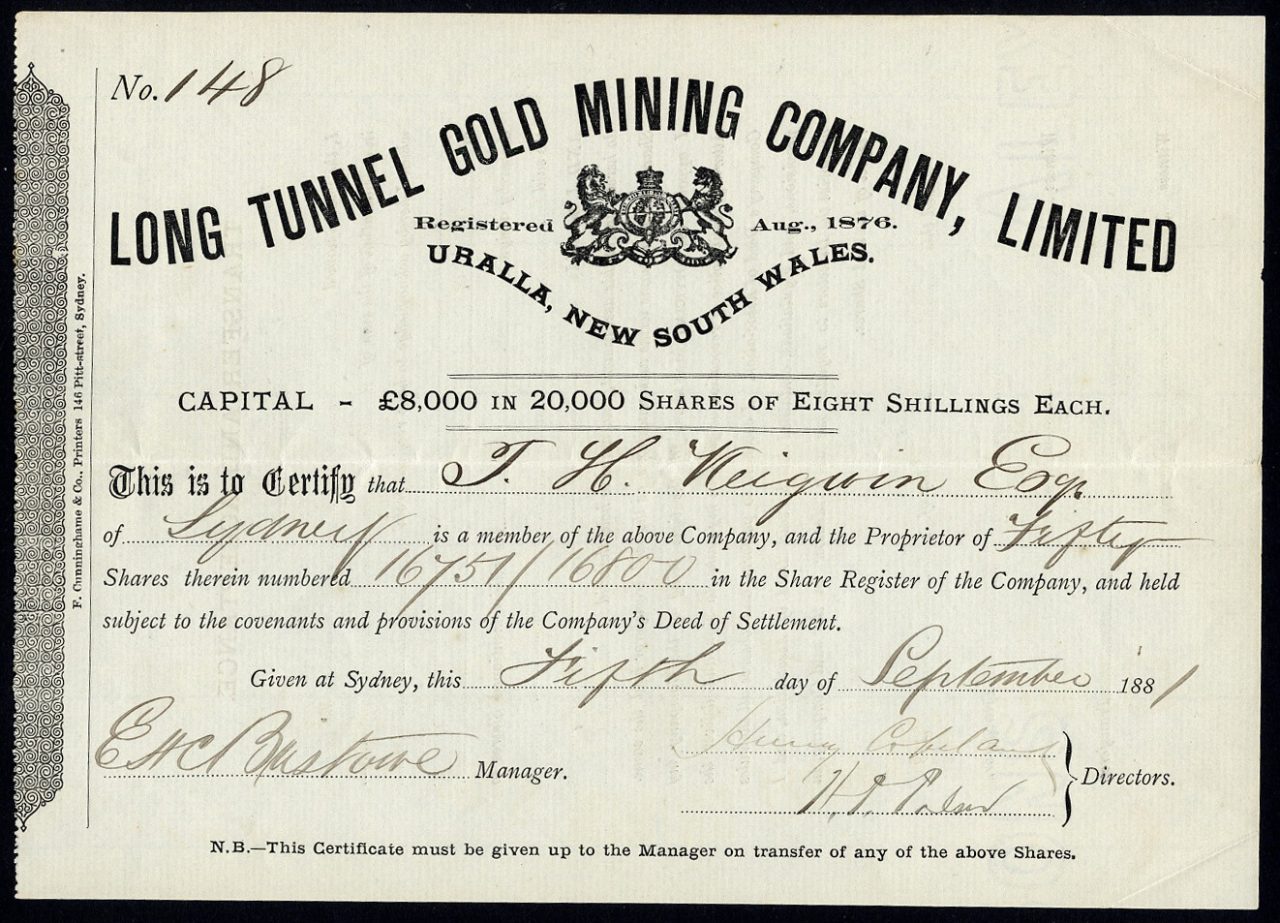 No. 148
LONG TUNNEL GOLD MINING COMPANY, LIMITED
Registered Aug., 1876.
URALLA, NEW SOUTH WALES.
CAPITAL - £8,000 IN 20,000 SHARES OF EIGHT SHILLINGS EACH.
This is to Certify that T. H. Keigwin Esq.
of Sydney is a member of the above Company, and the Proprietor of Fifty
Shares therein numbered 16751/16800 in the Share Register of the Company, and held
subject to the covenants and provisions of the Company's Deed of Settlement.
Given at Sydney, this Fifth day of September 1881
Manager.
Henry Copeland
Directors.
N.B.—This Certificate must be given up to the Manager on transfer of any of the above Shares.
F. Cunninghame & Co., Printers 146 Pitt-street, Sydney.